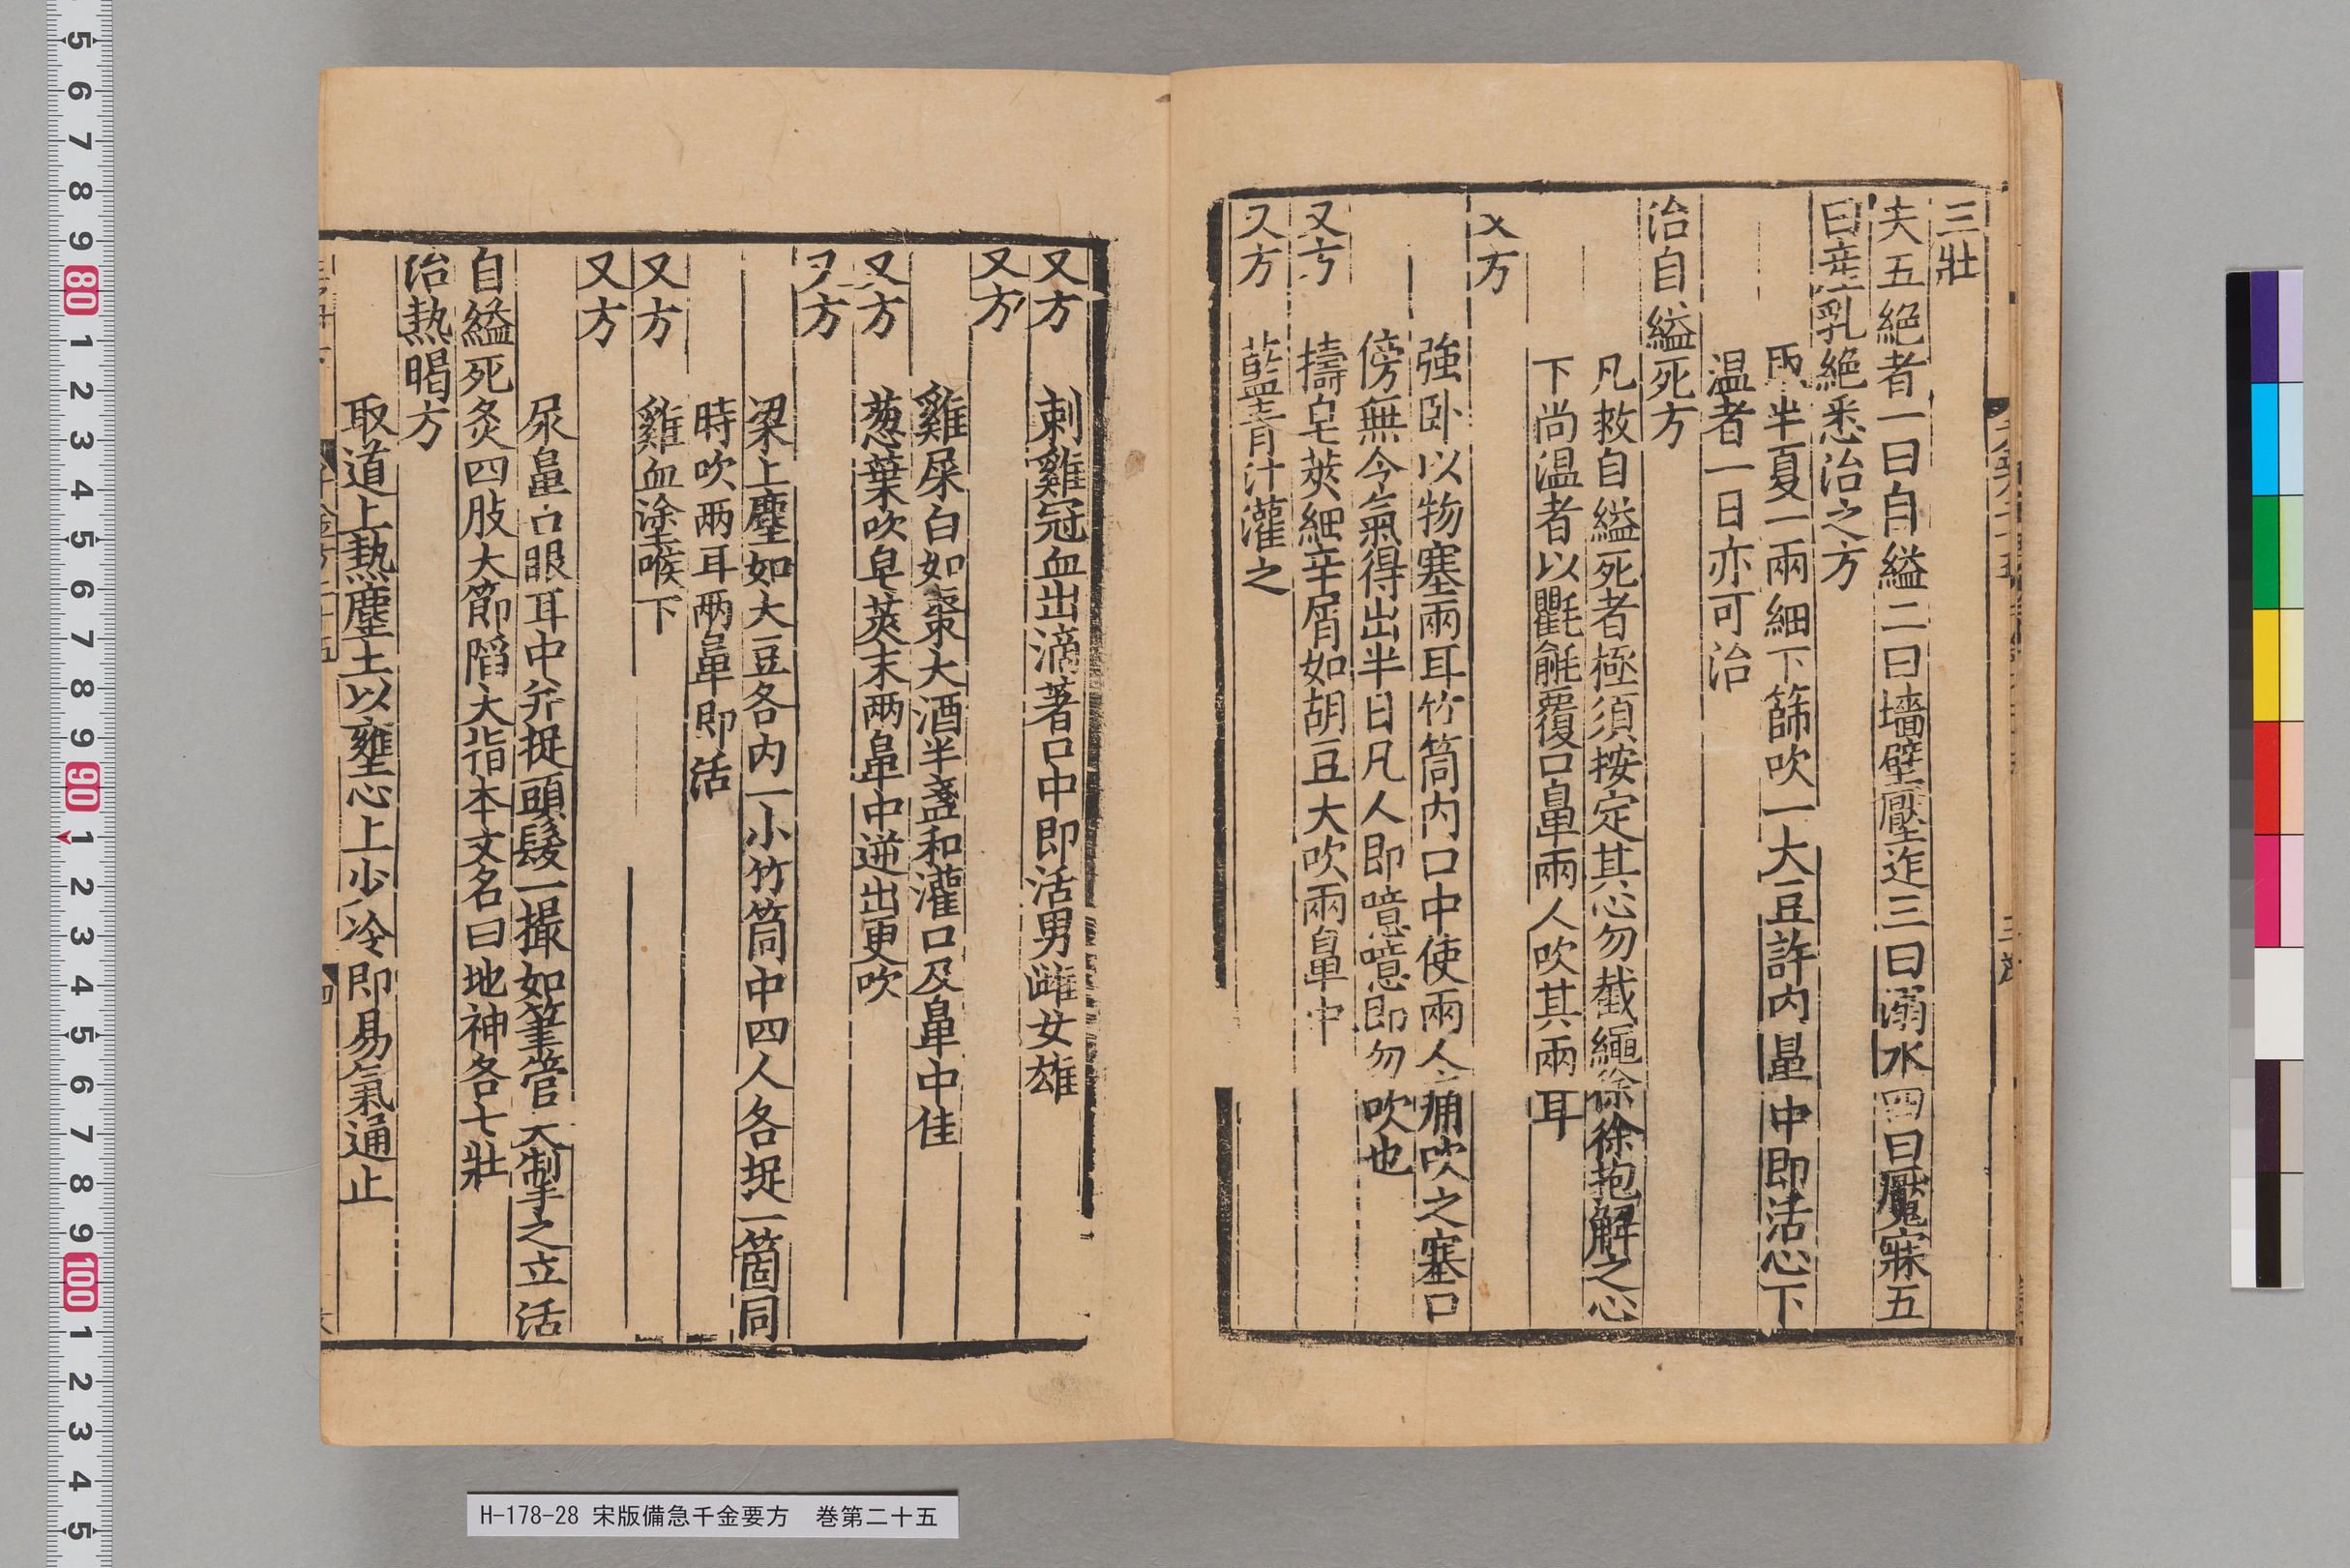 三壯
夫五絶者一曰自縊二曰墻壁壓迮三曰溺水四曰魘寐五
曰産乳絶悉治之方
半夏一兩細下篩吹一大豆許内鼻中即活心下
温者一日亦可治
治自縊死方
凡救自縊死者極須按定其心勿截繩徐徐抱解之心
下尚温者以氍毹覆口鼻兩人吹其兩耳
又方
強卧以物塞兩耳竹筒内口中使兩人痛吹之塞口
傍無令氣得出半日凡人即噫噫即勿吹也
又方
擣皂莢細辛屑如胡豆大吹兩鼻中
又方
藍青汁灌之
又方
刺雞冠血出滴著口中即活男雌女雄
又方
雞屎白如棗大酒半盞和灌口及鼻中佳
又方
葱葉吹皂莢末兩鼻中逆出更吹
又方
梁上塵如大豆各内一小竹筒中四人各捉一箇同
時吹兩耳兩鼻即活
又方
雞血塗喉下
又方
尿鼻口眼耳中并捉頭髮一撮如筆管大掣之立活
自縊死灸四肢大節陷大指本文名曰地神各七壯
治熱暍方
取道上熱塵土以壅心上少冷即易氣通止
H-178-28 宋版備急千金要方　巻第二十五
5 6 7 8 9 80 1 2 3 4 5 6 7 8 9 90 1 2 3 4 5 6 7 8 9 100 1 2 3 4 5